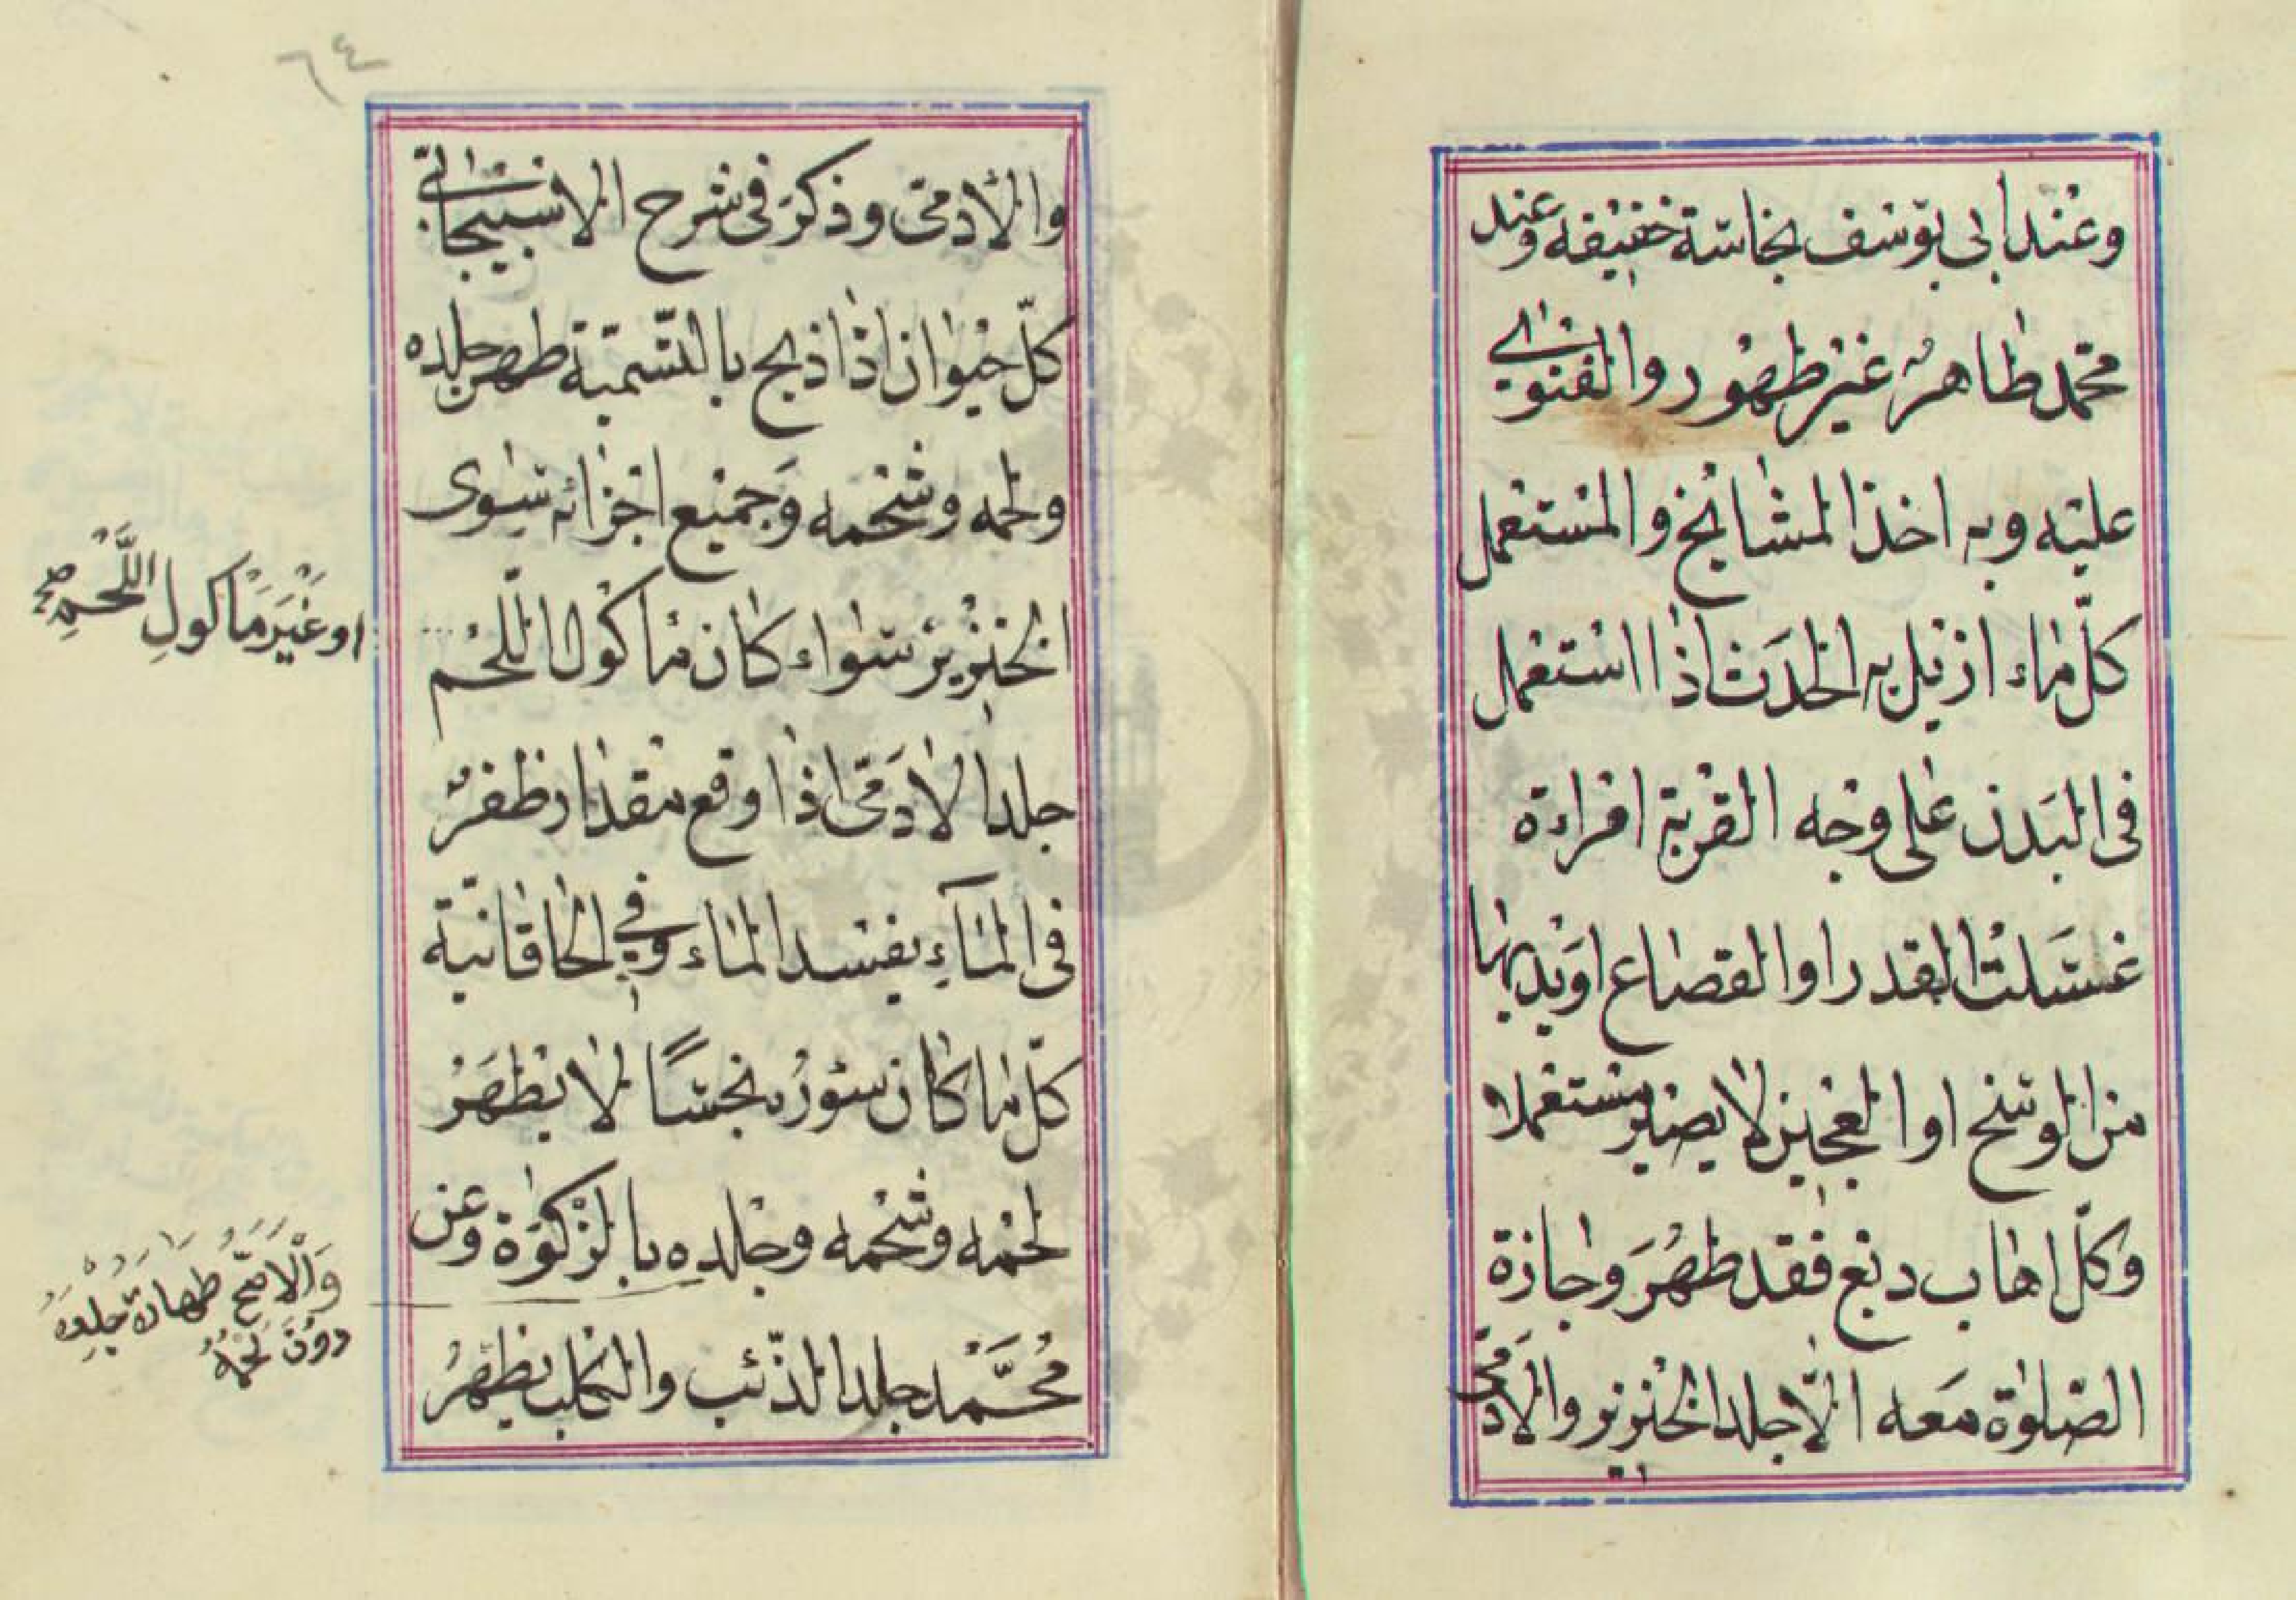 وعند ابى يوسف نجاسة خفيفة وعند
محمد طاهر غير طهور والفتوى
عليه وبه اخذ المشايخ والمستعمل
كلّ ماء ازيل به الحدث اذا استعمل
فى البدن على وجه القربة افراءة
غسلت القدر او القصاع او يديها
من الوسخ او العجين لا يصير مستعملا
وكلّ اهاب دبغ فقد طهر وجازة
الصلوة معه الّا جلد الخنزير والادمى
٦٤
والادمى وذكر فى شرح الاسبيجابى
كلّ حيوان اذا ذبح بالتسمية طهر جلده
ولحمه وشحمه وجميع اجزائه سوى
الخنزير سواء كان مأكول اللحم
او غَيرَ مَأكولِ اللَّحْمِ صح
جلد الادمى اذا وقع مقدار ظفر
فى المآء يفسد الماء وفى الخاقانية
كلّ ما كان سؤر نجسًا لا يطهر
لحمه وشحمه وجلده بالزكوة وعن
وَالْاَصَحّ طهارة جِلدِهِ
دونَ لحمه
مُحَمَّد جلد الذئب والكلب يطهرُ